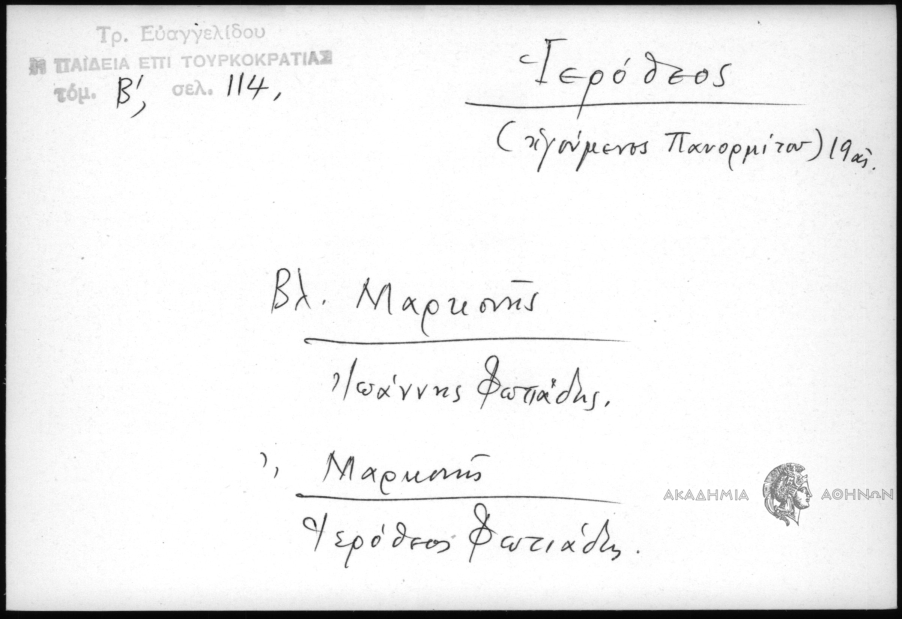 Τρ. Εὐαγγελίδου
Η ΠΑΙΔΕΙΑ ΕΠΙ ΤΟΥΡΚΟΚΡΑΤΙΑΣ
τόμ. Β', σελ. 114,
Ἱερόθεος
(ἡγούμενος Πανορμίτου) 19 αἰ.
Βλ. Μαρκονῆς
Ἰωάννης Φωτιάδης.
〃 Μαρκονῆς
Ἱερόθεος Φωτιάδης.
ΑΚΑΔΗΜΙΑ ΑΘΗΝΩΝ